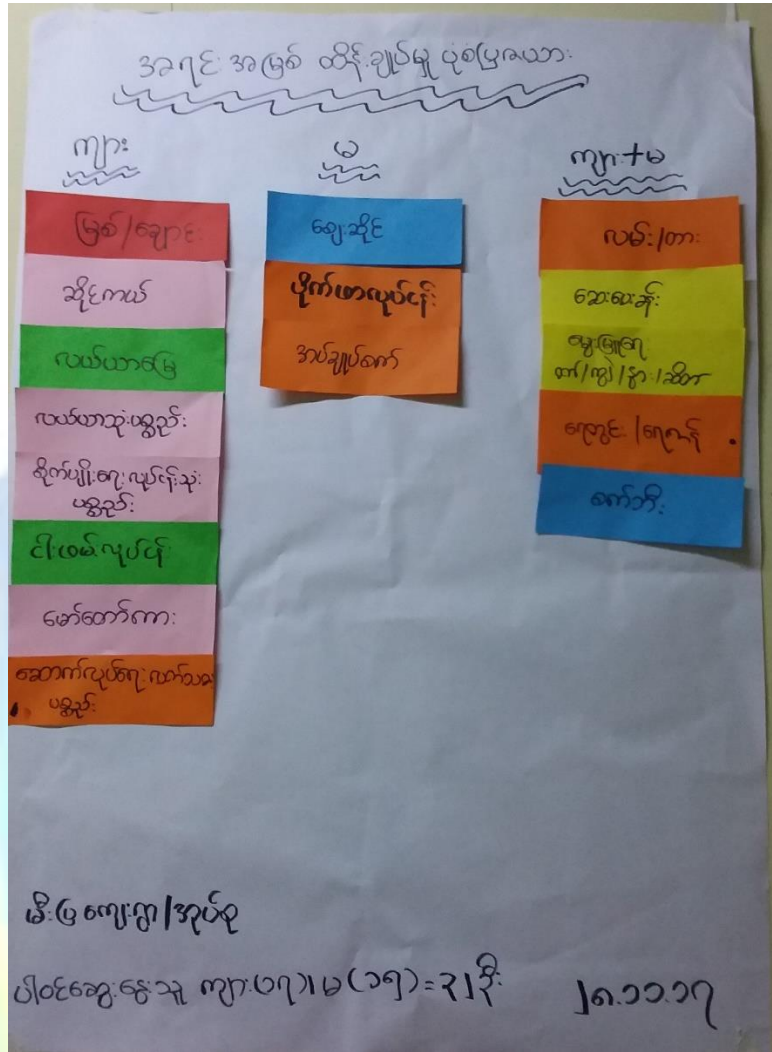 အရင်းအမြစ် ထိန်းချုပ်မှု ပုံစံပြဇယား
ကျား
မြစ်/ချောင်း
ဆိုင်ကယ်
လယ်ယာမြေ
လယ်ယာသုံးပစ္စည်း
စိုက်ပျိုးရေးလုပ်ငန်းသုံး
ပစ္စည်း
ငါးဖမ်းလုပ်ငန်း
မော်တော်ကား
ဆောက်လုပ်ရေးလက်သမား
ပစ္စည်း
မ
စျေးဆိုင်
ဝိုက်ဖာလုပ်ငန်း
အပ်ချုပ်စက်
ကျား+မ
လမ်း/တား
ဆေးပေးခန်း
မွေးမြူရေး
ဝက်/ကျွဲ/နွား/ဆိတ်
ရေတွင်း/ရေကန်
စက်ဘီး
မီးပြကျေးရွာ/အုပ်စု
ပါဝင်ဆွေးနွေးသူ ကျား(၁၇)၊မ(၁၅)=၃၂ဦး
၂၈.၁၁.၁၇